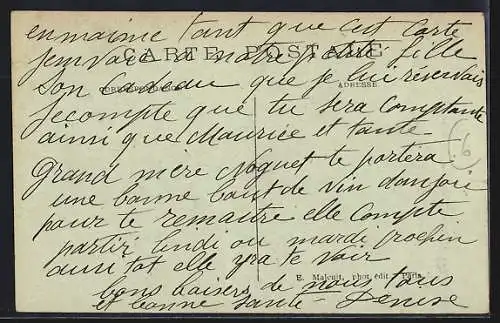 en maime tant que cet carte
CARTE POSTALE
jenvaie a notre petite fille
Son Cadeau que je lui reservais
CORRESPONDANCE
ADRESSE
Je compte que tu sera Comptante
ainsi que Maurice et tante
Grand mère Noguet te portera
une bonne bout de vin danjou
6
pour te remaitre elle Compte
partir lindi ou mardi prochin
ausi tot elle yra te voir
E. Malcuit, phot. édit. Paris
bons baisers de nous tous
et bonne Santé - Denise